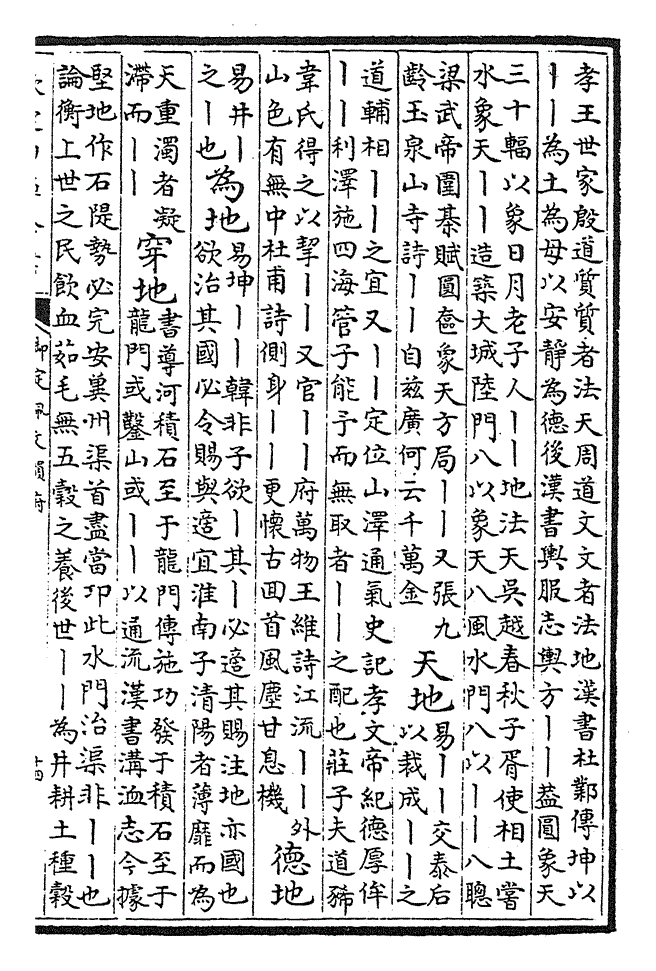 孝王世家殷道質質者法天周道文文者法地漢書杜鄴傳坤以
〡〡為土為母以安靜為德後漢書輿服志輿方〡〡葢圓象天
三十輻以象日月老子人〡〡地法天吳越春秋子胥使相土嘗
水象天〡〡造築大城陸門八以象天八風水門八以〡〡八聰
梁武帝圍棊賦圓奩象天方局〡〡又張九
齡玉泉山寺詩〡〡自兹廣何云千萬金
天地
易〡〡交泰后
以裁成〡〡之
道輔相〡〡之宜又〡〡定位山澤通氣史記孝文帝紀德厚侔
〡〡利澤施四海管子能予而無取者〡〡之配也莊子夫道狶
韋氏得之以挈〡〡又官〡〡府萬物王維詩江流〡〡外
山色有無中杜甫詩側身〡〡更懷古回首風塵甘息機
德地
易井〡
之〡也
為地
易坤〡〡韓非子欲〡其〡必適其賜注地亦國也
欲治其國必令賜與適宜淮南子清陽者薄靡而為
天重濁者凝
滯而〡〡
穿地
書導河積石至于龍門傳施功發于積石至于
龍門或鑿山或〡〡以通流漢書溝洫志今據
堅地作石隄勢必完安兾州渠首盡當卬此水門治渠非〡〡也
論衡上世之民飲血茹毛無五穀之養後世〡〡為井耕土種穀
御定佩文韻府
十四